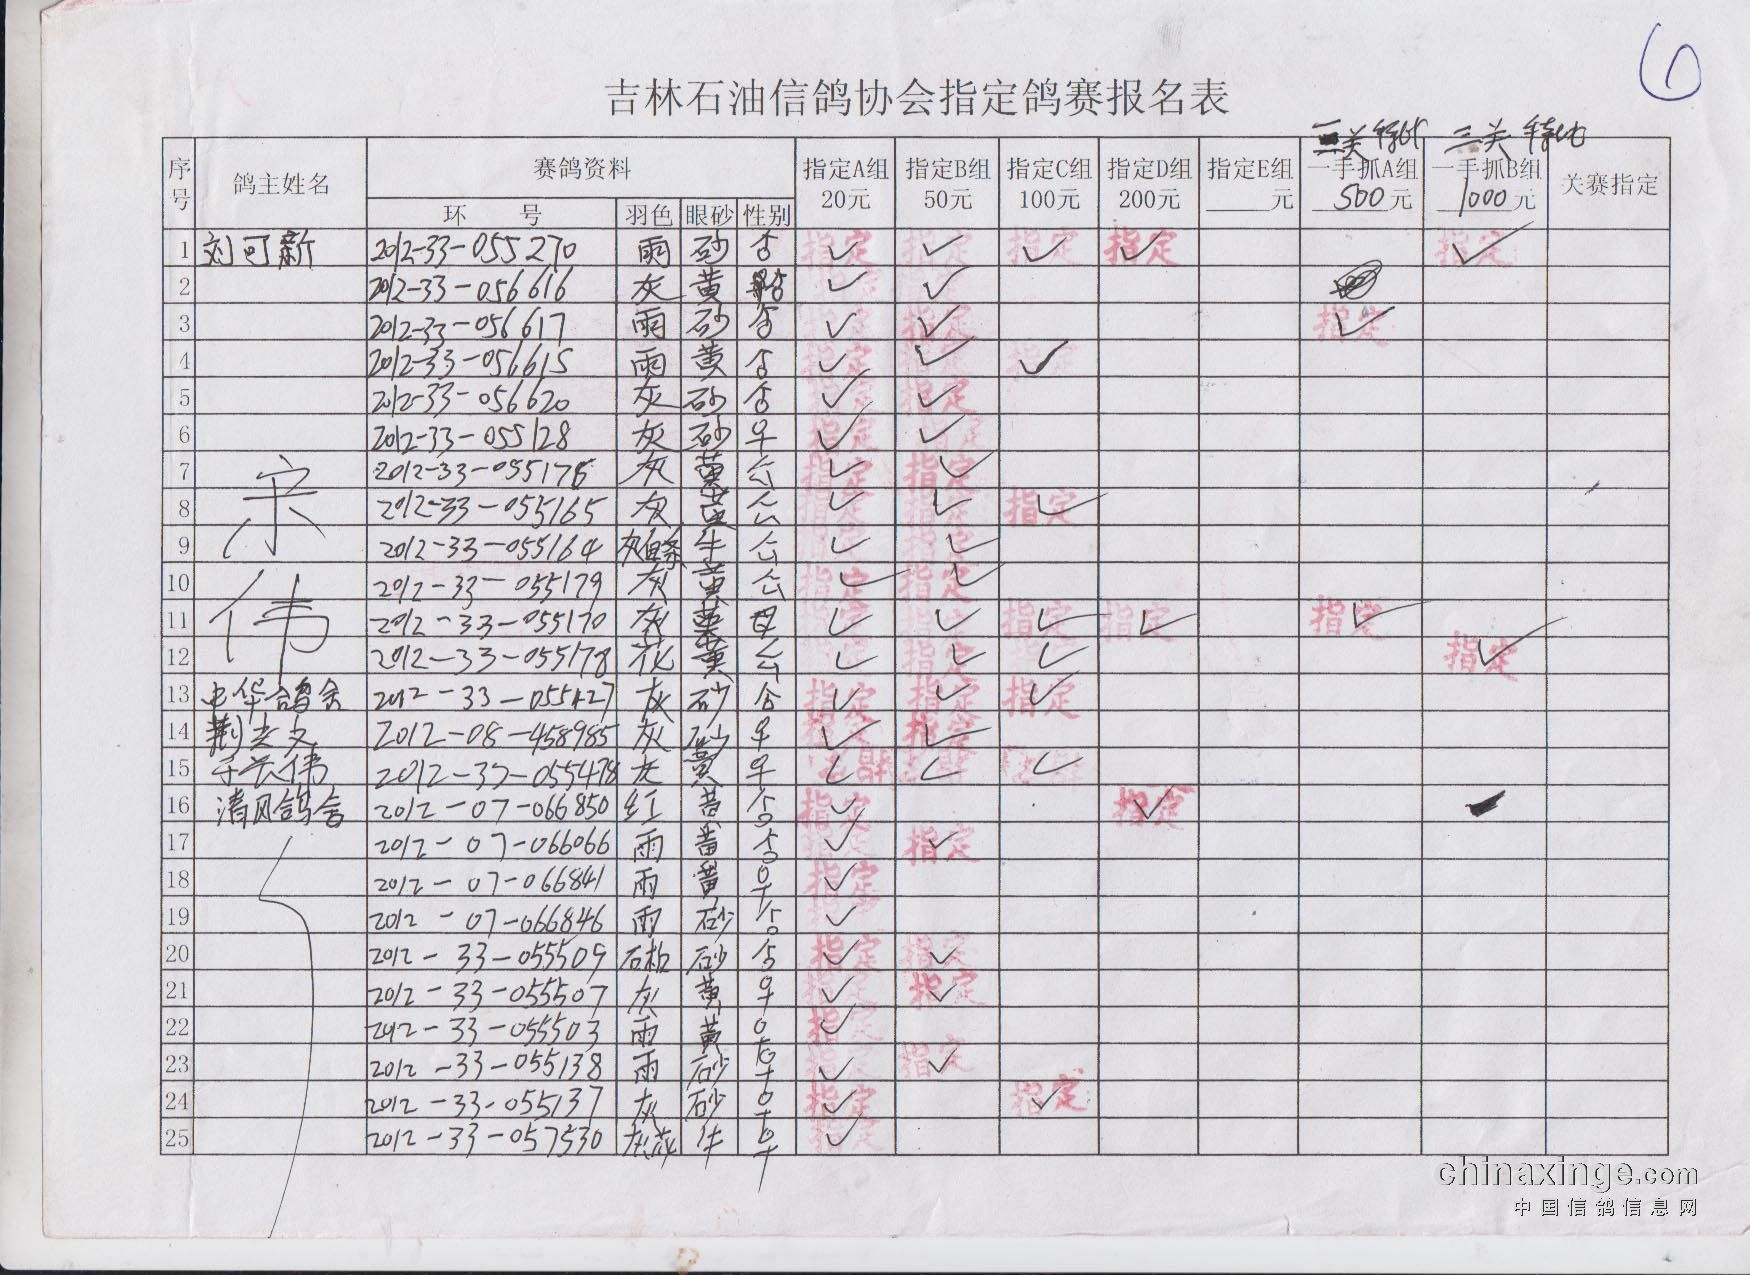 6
吉林石油信鸽协会指定鸽赛报名表
三关 特比 三关 特比
序号 鸽主姓名 赛鸽资料 指定A组 20元 指定B组 50元 指定C组 100元 指定D组 200元 指定E组 ____元 一手抓A组 500元 一手抓B组 1000元 关赛指定
环 号 羽色 眼砂 性别
1 刘可新 2012-33-055270 雨 砂 ✓ ✓ ✓ ✓ ✓
2 2012-33-056616 灰 黄 ✓ ✓
3 2012-33-056617 雨 砂 ✓ ✓ ✓
4 2012-33-056615 雨 黄 ✓ ✓ ✓
5 2012-33-056620 灰 砂 ✓ ✓
6 2012-33-055128 灰 砂 ♀ ✓ ✓
7 宋伟 2012-33-055176 灰 黄 公 ✓ ✓
8 2012-33-055165 灰 黄 公 ✓ ✓ ✓
9 2012-33-055164 灰白条 牛 公 ✓ ✓
10 2012-33-055179 灰 黄 公 ✓ ✓
11 2012-33-055170 灰 黄 母 ✓ ✓ ✓ ✓ ✓
12 2012-33-055178 花 黄 公 ✓ ✓ ✓ ✓
13 中华鸽舍 2012-33-055427 灰 砂 ✓ ✓ ✓
14 荆志文 2012-08-458985 灰 砂 ♀ ✓ ✓
15 于长伟 2012-33-055478 灰 黄 ♀ ✓ ✓ ✓
16 清风鸽舍 2012-07-066850 红 黄 ✓ ✓
17 2012-07-066066 雨 黄 ✓ ✓
18 2012-07-066841 雨 黄 ♀ ✓
19 2012-07-066846 雨 砂 ✓
20 2012-33-055509 石板 砂 ✓ ✓
21 2012-33-055507 灰 黄 ♀ ✓ ✓
22 2012-33-055503 雨 黄 ✓
23 2012-33-055138 雨 砂 ✓ ✓
24 2012-33-055137 灰 砂 ♀ ✓ ✓
25 2012-33-057530 灰花 牛 ✓
chinaxinge.com
中国信鸽信息网